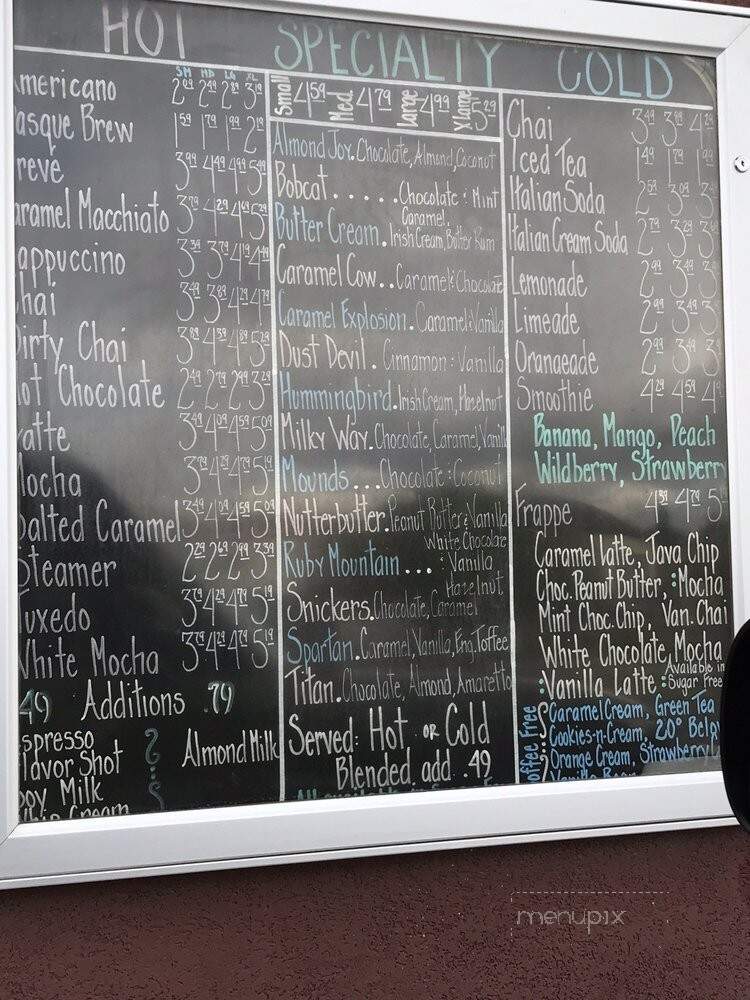 HOT
SM MD LG XL
mericano 2⁰⁹ 2⁴⁹ 2⁸⁹ 3¹⁹
asque Brew 1⁵⁹ 1⁷⁹ 1⁹⁹ 2¹⁹
reve 3⁹⁹ 4⁴⁹ 4⁹⁹ 5⁴⁹
aramel Macchiato 3⁷⁹ 4²⁹ 4⁶⁹ 5²⁹
appuccino 3³⁹ 3⁷⁹ 4¹⁹ 4⁴⁹
hai 3⁴⁹ 3⁸⁹ 4²⁹ 4⁷⁹
irty Chai 3⁸⁹ 4⁵⁹ 4⁸⁹ 5⁴⁹
ot Chocolate 2⁴⁹ 2⁷⁹ 2⁹⁹ 3²⁹
atte 3⁴⁹ 4⁰⁹ 4⁵⁹ 5⁰⁹
ocha 3⁷⁹ 4²⁹ 4⁷⁹ 5¹⁹
alted Caramel 3⁴⁹ 4⁰⁹ 4⁵⁹ 5⁰⁹
teamer 2²⁹ 2⁶⁹ 2⁹⁹ 3³⁹
uxedo 3⁷⁹ 4²⁹ 4⁷⁹ 5¹⁹
hite Mocha 3⁷⁹ 4²⁹ 4⁷⁹ 5¹⁹
49 Additions .79
spresso
lavor Shot
oy Milk
hip Cream
Almond Milk
SPECIALTY
Small 4⁵⁹ Med. 4⁷⁹ Large 4⁹⁹ Xlarge 5²⁹
Almond Joy. Chocolate, Almond, Coconut
Bobcat..... Chocolate : Mint
Butter Cream. Caramel, Irish Cream, Butter Rum
Caramel Cow.. Caramel : Chocolate
Caramel Explosion. Caramel : Vanilla
Dust Devil. Cinnamon : Vanilla
Hummingbird. Irish Cream, Hazelnut
Milky Way. Chocolate, Caramel, Vanill
Mounds... Chocolate : Coconut
Nutterbutter. Peanut Butter : Vanilla
Ruby Mountain... White Chocolate : Vanilla Hazelnut
Snickers. Chocolate, Caramel
Spartan. Caramel, Vanilla, Eng. Toffee
Titan. Chocolate, Almond, Amaretto
Served: Hot or Cold
Blended add .49
COLD
Chai 3⁴⁹ 3⁸⁹ 4²⁹
Iced Tea 1⁴⁹ 1⁷⁹ 1⁹⁹
Italian Soda 2⁵⁹ 3⁰⁹ 3
Italian Cream Soda 2⁷⁹ 3²⁹ 3
Lemonade 2⁹⁹ 3⁴⁹ 3
Limeade 2⁹⁹ 3⁴⁹ 3
Orangeade 2⁹⁹ 3⁴⁹ 3
Smoothie 4²⁹ 4⁵⁹ 4
Banana, Mango, Peach
Wildberry, Strawberr
Frappe 4⁵⁹ 4⁷⁹ 5
Caramel Latte, Java Chip
Choc. Peanut Butter, : Mocha
Mint Choc. Chip, Van. Chai
White Chocolate, Mocha
: Vanilla Latte : Available in Sugar Free
offee Free
Caramel Cream, Green Tea
Cookies-n-Cream, 20° Belo
Orange Cream, Strawberry
Vanilla Bean
menupix